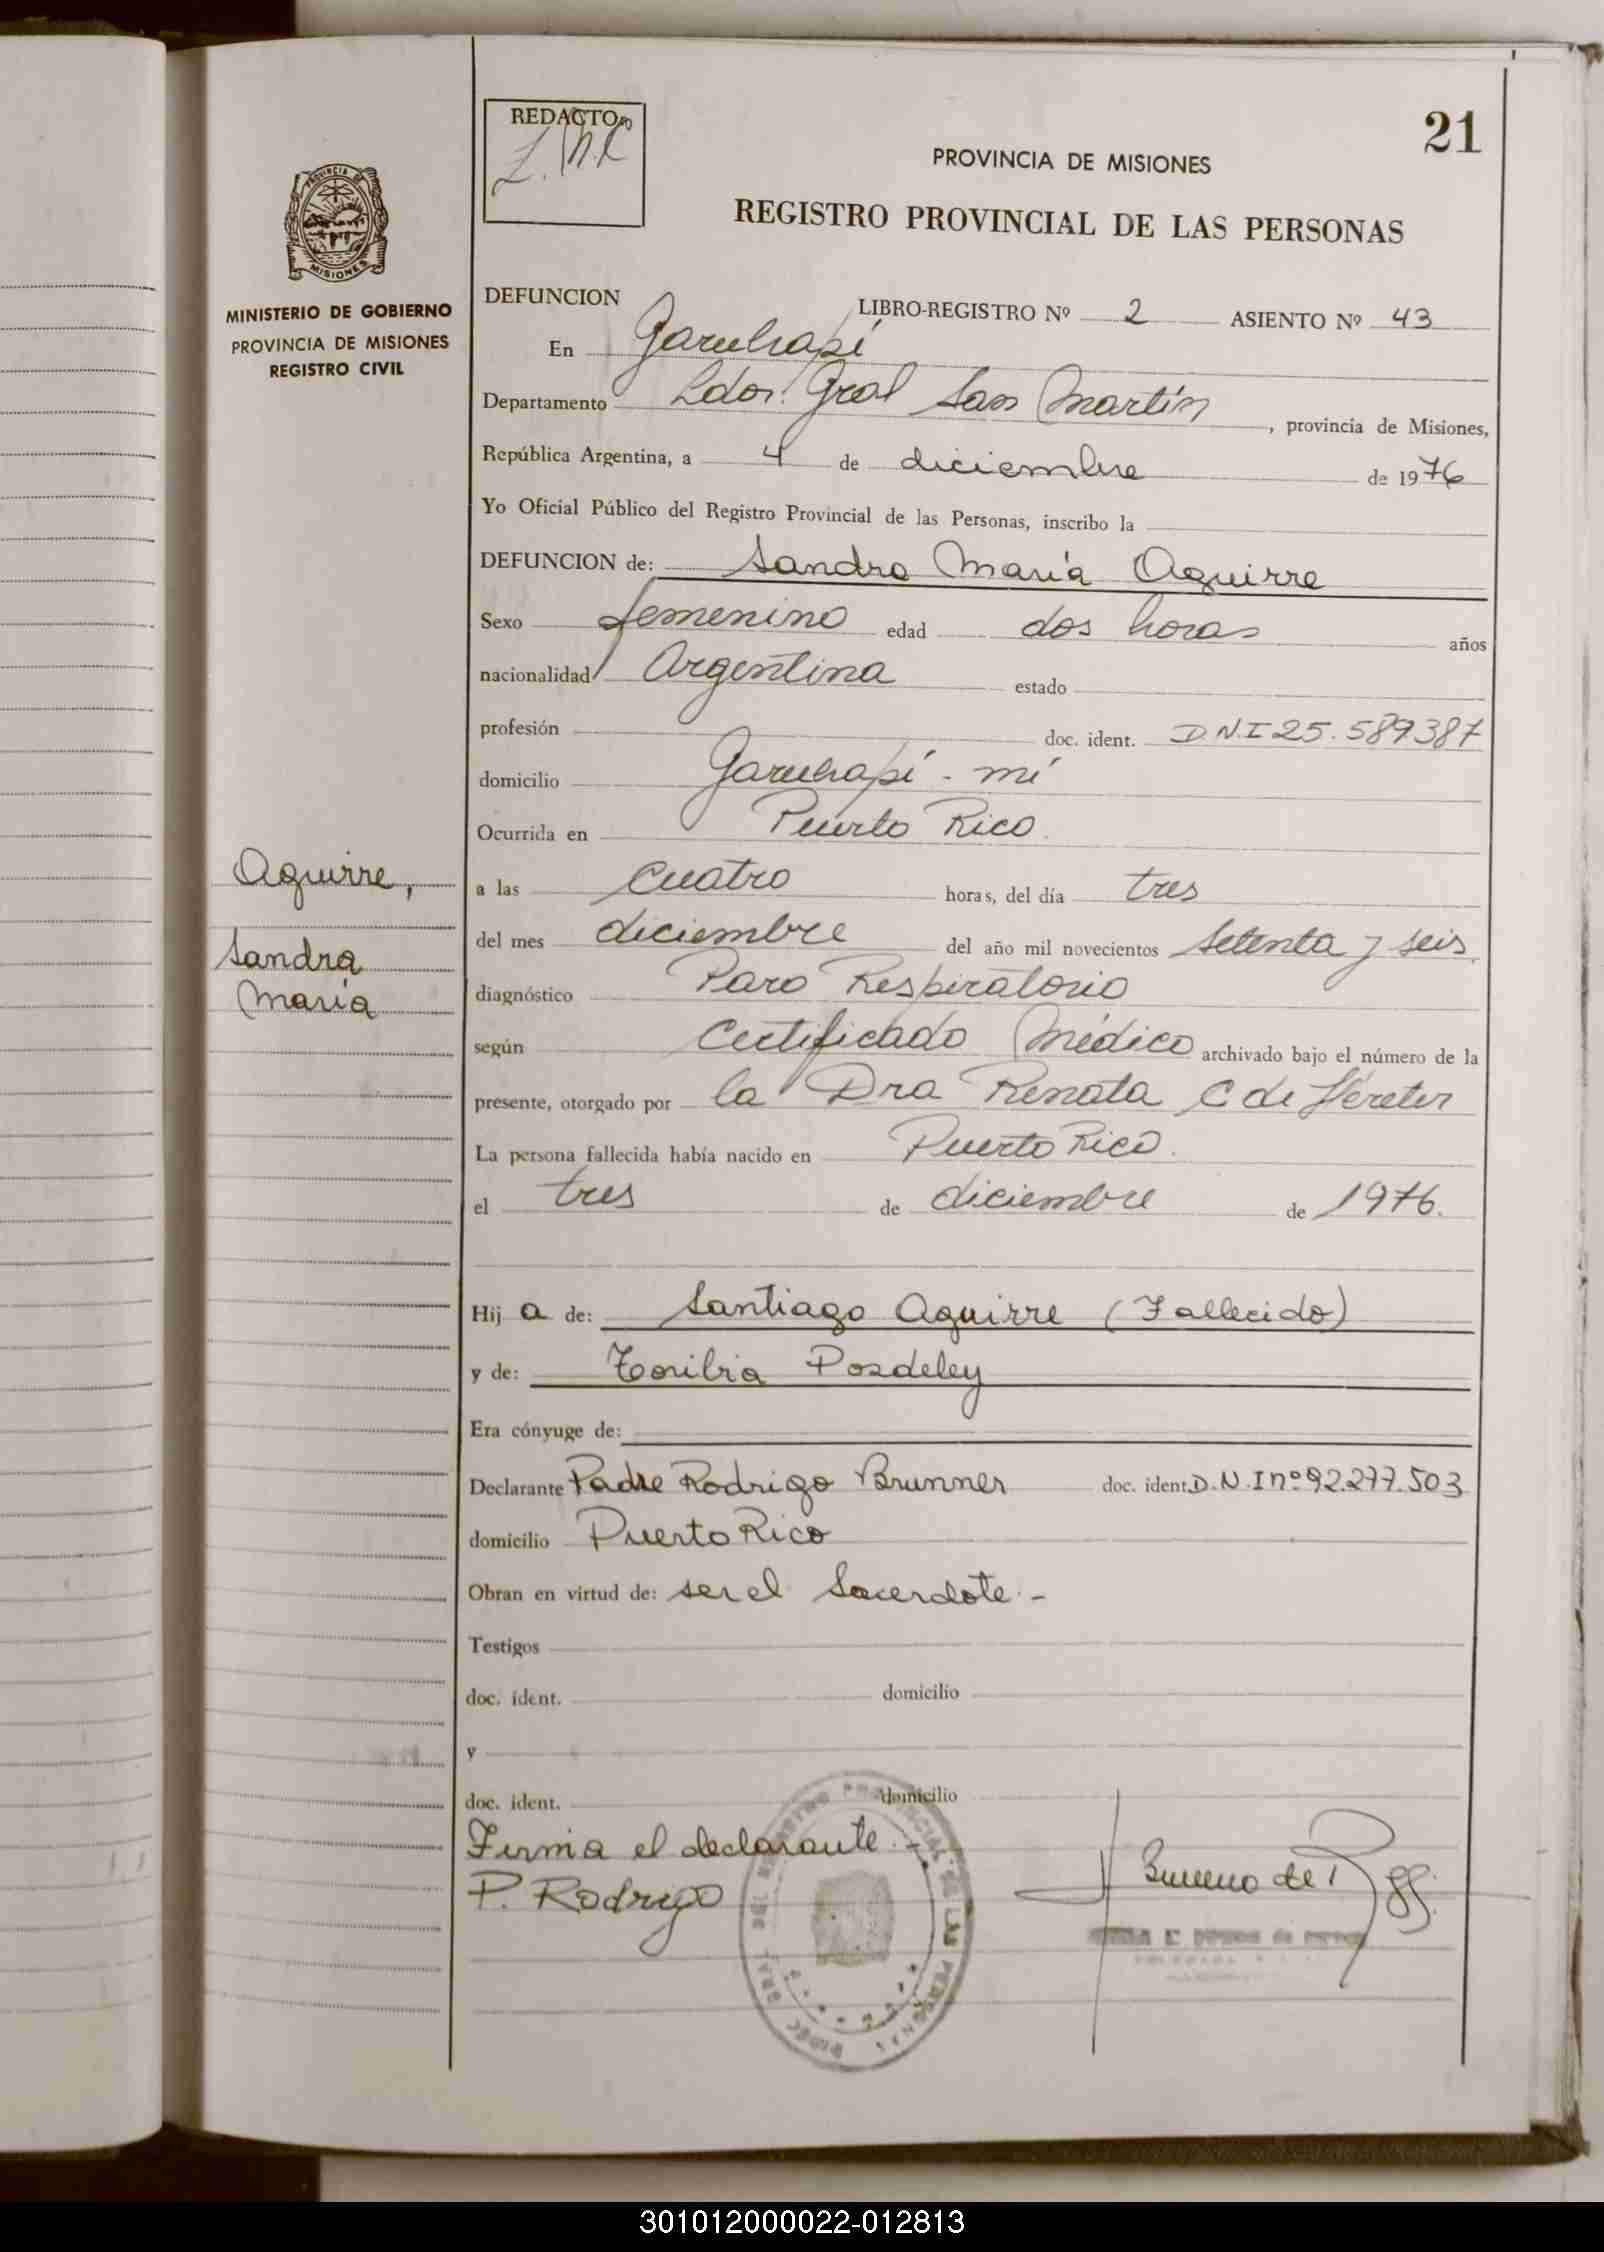 21
REDACTO
PROVINCIA DE MISIONES
REGISTRO PROVINCIAL DE LAS PERSONAS
PROVINCIA DE
MISIONES
MINISTERIO DE GOBIERNO
PROVINCIA DE MISIONES
REGISTRO CIVIL
DEFUNCION
LIBRO-REGISTRO Nº 2 ASIENTO Nº 43
En Garuhapí
Departamento Ldor. Gral San Martín, provincia de Misiones,
República Argentina, a 4 de diciembre de 1976
Yo Oficial Público del Registro Provincial de las Personas, inscribo la
DEFUNCION de: Sandra María Aguirre
Sexo femenino edad dos horas años
nacionalidad Argentina estado
profesión doc. ident. D N.I 25.589387
domicilio Garuhapí - mí
Ocurrida en Puerto Rico.
Aguirre,
a las cuatro horas, del día tres
Sandra
del mes diciembre del año mil novecientos setenta y seis.
María
diagnóstico Paro Respiratorio
según Certificado Médico archivado bajo el número de la
presente, otorgado por la Dra Renata C de
La persona fallecida había nacido en Puerto Rico.
el tres de diciembre de 1976.
Hij a de: Santiago Aguirre (Fallecido)
y de: Toribia Posdeley
Era cónyuge de:
Declarante Padre Rodrigo Brunner doc. ident. D.N.I nº 92.277.503
domicilio Puerto Rico
Obran en virtud de: ser el Sacerdote.-
Testigos
doc. ident. domicilio
y
doc. ident. domicilio
Firma el declarante.-
P. Rodrigo
DEL REGISTRO PROVINCIAL DE LAS PERSONAS
301012000022-012813